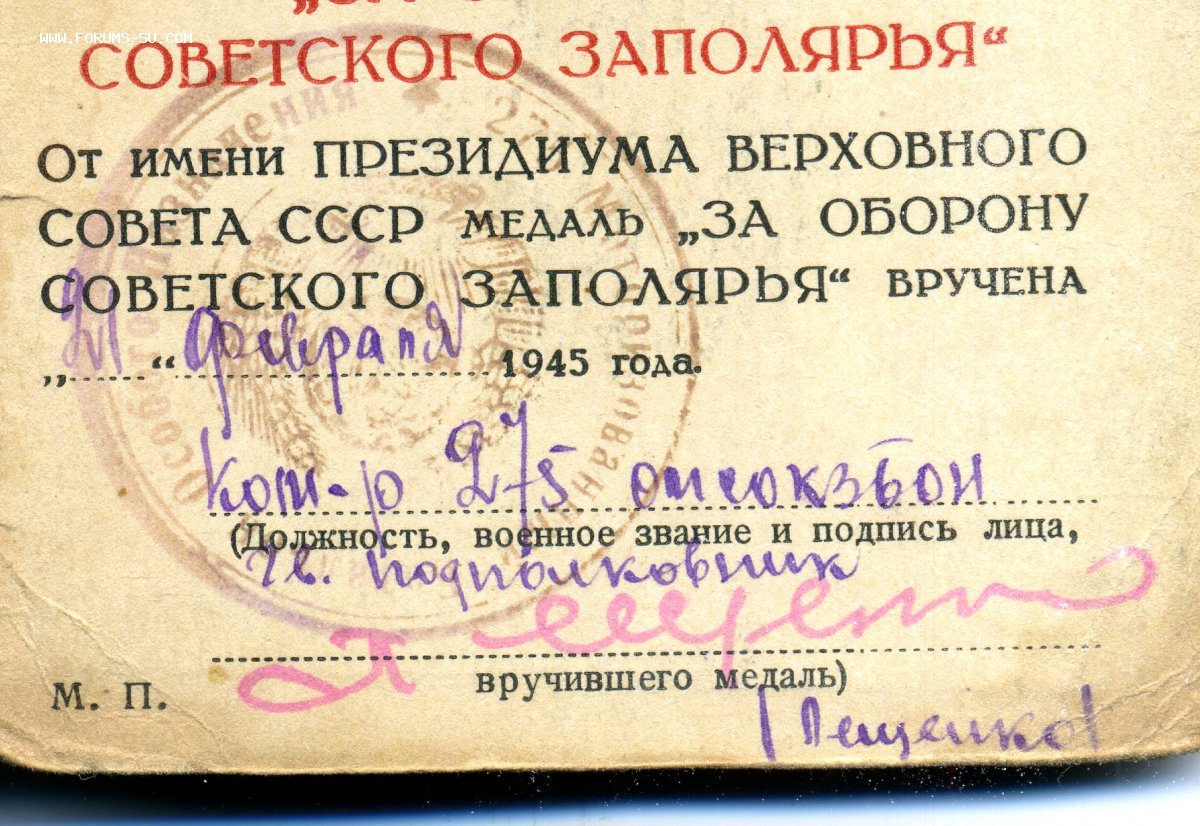 WWW.FORUMS-SU.COM
СОВЕТСКОГО ЗАПОЛЯРЬЯ“
От имени ПРЕЗИДИУМА ВЕРХОВНОГО
СОВЕТА СССР медаль „ЗА ОБОРОНУ
СОВЕТСКОГО ЗАПОЛЯРЬЯ“ вручена
„21“ февраля 1945 года.
Ком-р 275 омсокзбон
(Должность, военное звание и подпись лица,
гв. подполковник
вручившего медаль)
М. П.
(Пещенко)
Особого назначения * 27 Моторизованный